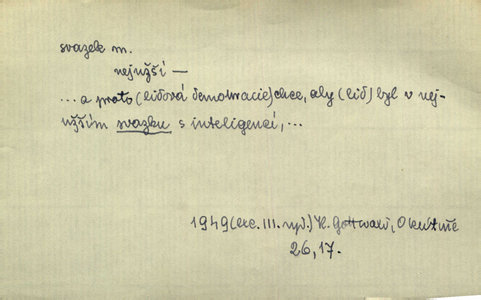 svazek m.
nejužší —
... a proto (lidová demokracie) chce, aby (lid) byl v nej-
užším svazku s inteligencí, ...
1949 (exc. III. vyd.) Kl. Gottwald, O kultuře
26, 17.